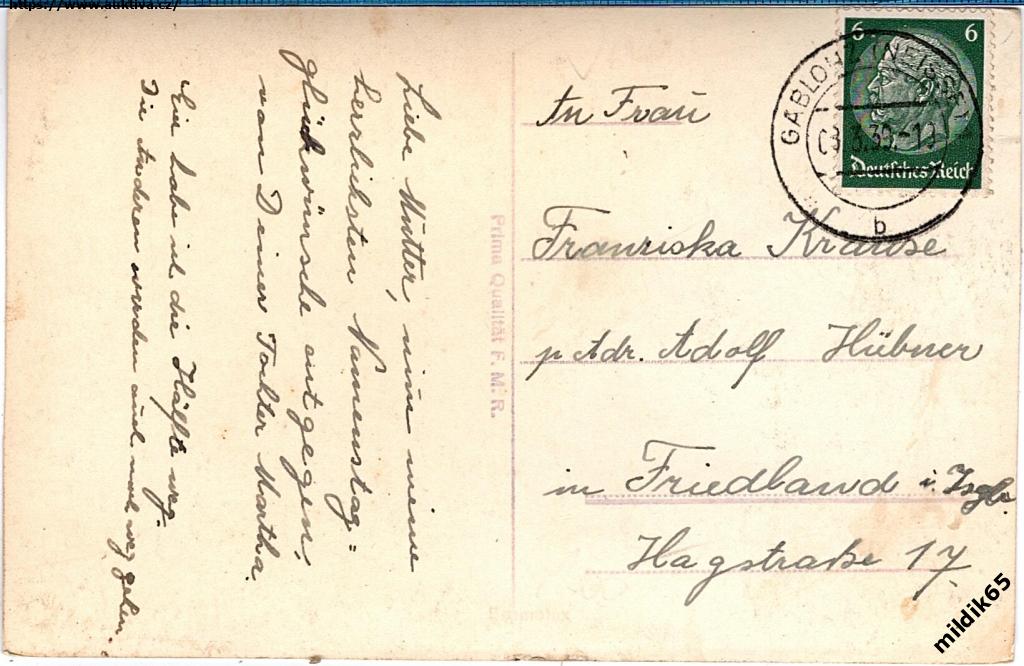 https://www.auktiva.cz/
Liebe Mutter, nim meine
herrlichsten Namenstag=
glückwünsche entgegen,
von Deiner Tochter Martha.
Hier habe ich die Hälfte weg.
Die Anderen werden auch noch weg gehen.
Prima Qualität F. M. R.
6 6
Deutsches Reich
GABLONZ (NEISSE)
b
An Frau
Franziska Krause
p Adr. Adolf Hübner
in Friedland i. Isgb.
Hagstraße 17.
mildik65